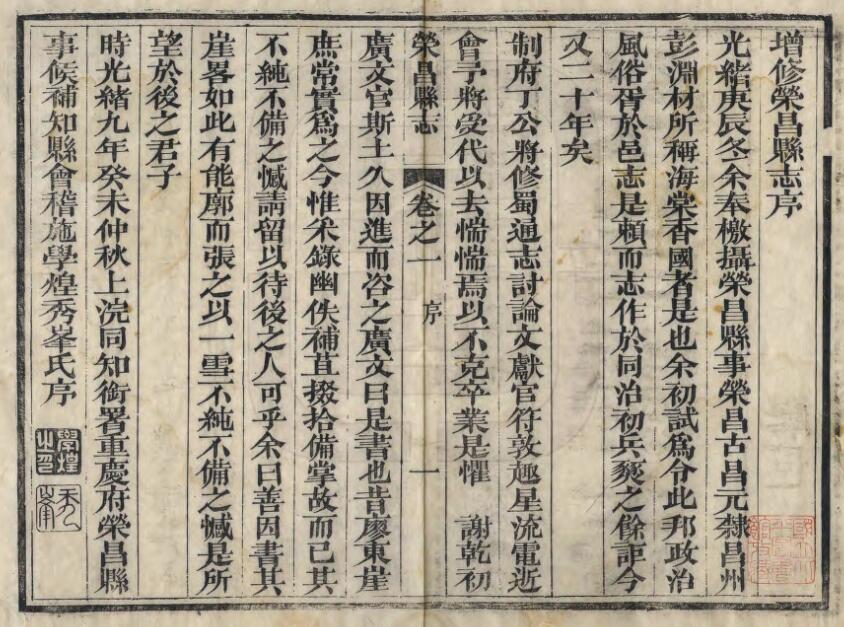 增修榮昌縣志序
光緒庚辰冬余奉檄攝榮昌縣事榮昌古昌元隸昌州
彭淵材所稱海棠香國者是也余初試為令此邦政治
風俗胥於邑志是賴而志作於同治初兵燹之餘距今
又二十年矣
制府丁公將修蜀通志討論文獻官符敦趣星流電逝
會予將受代以去惴惴焉以不克卒業是懼 謝乾初
榮昌縣志 卷之一 序 一
廣文官斯土久因進而咨之廣文曰是書也昔廖東崖
庶常實為之今惟采錄幽佚補苴掇拾備掌故而已其
不純不備之憾請留以待後之人可乎余曰善因書其
崖畧如此有能廓而張之以一雪不純不備之憾是所
望於後之君子
時光緒九年癸未仲秋上浣同知銜署重慶府榮昌縣
事候補知縣會稽施學煌秀峯氏序
學煌之印
秀峯